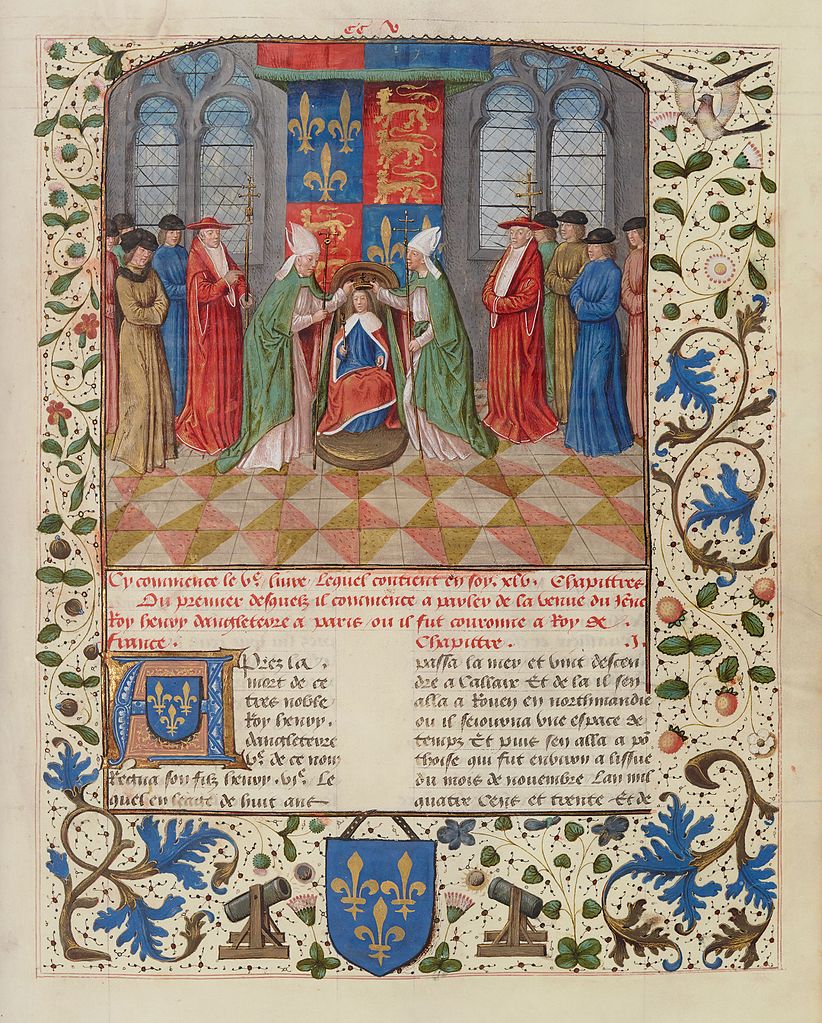 cc v
Cy commence le vᵉ. livre / Lequel contient en soy. xlv. Chapittres
Du premier desquelz il commence a parler de la venue du Jenē
Roy henry dangleterre a paris / ou il fut couronne a Roy de
france. Chapittre. J.
Aprez la
mort de ce
tres noble
Roy henry.
dangleterre
vᵉ. de ce nom
Regna son filz henry. vjᵉ. Le
quel en leage de huit ans
passa la mer et vint descen
dre a Callaix Et de la il sen
alla a Rouen en northmandie
ou il seiourna vne espace de
temps Et puis sen alla a pō
thoise qui fut enuiron a lissue
du mois de nouembre Lan mil
quatre Cens et trente Et de